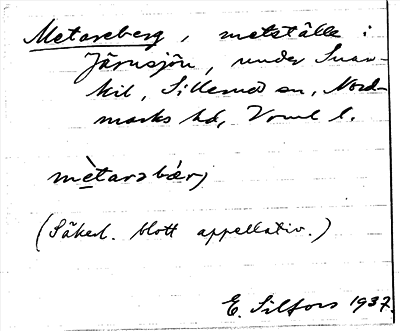 Metareberg, metställe i
Järnsjön, under Svar-
kil, Sillerud sn, Nord-
marks hd, Vrml l.
mètarəbær̨j
(Säkerl. blott appellativ.)
E. Silfors 1937.